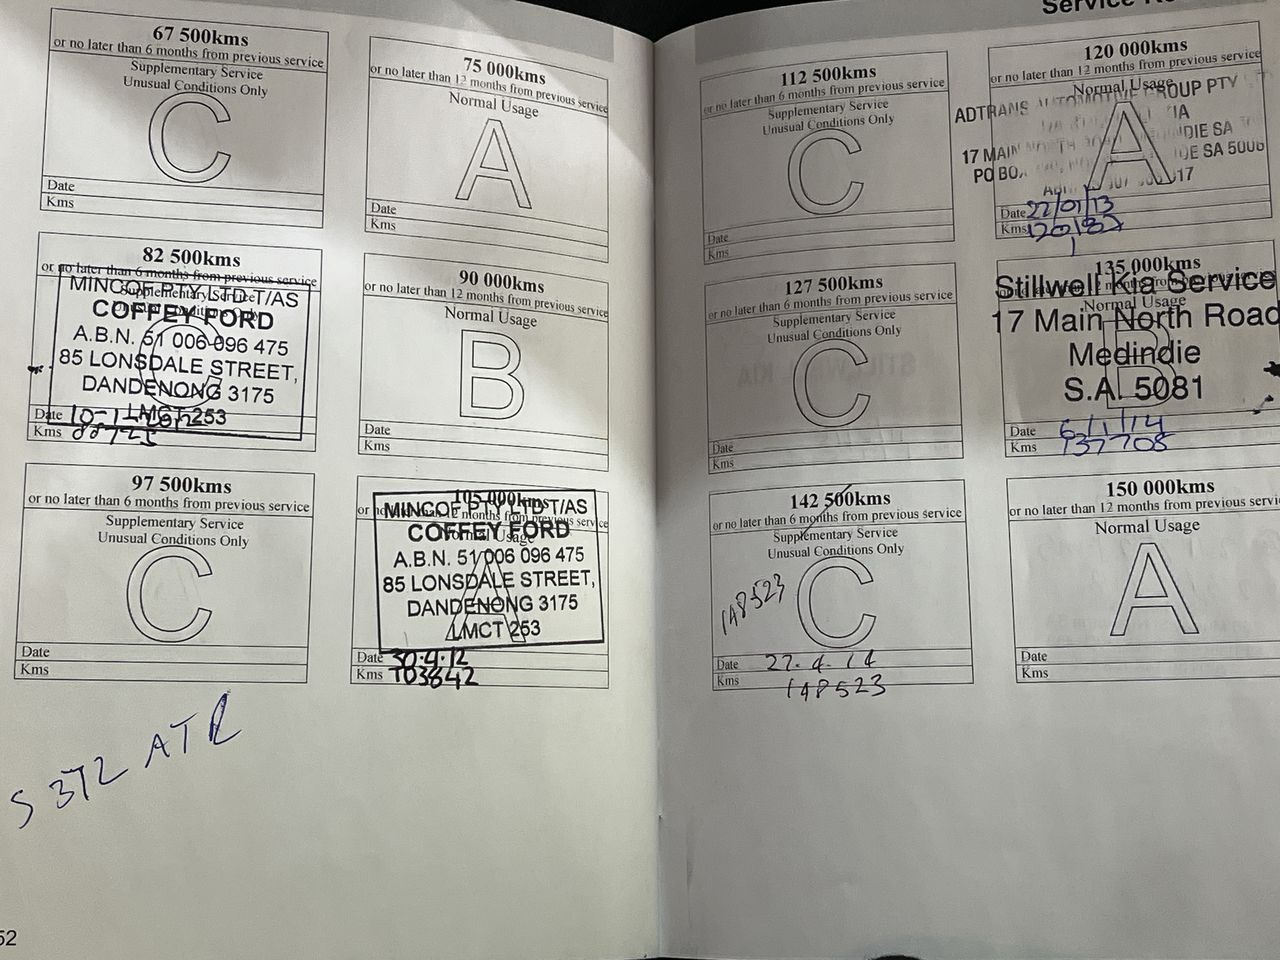 67 500kms
or no later than 6 months from previous service
Supplementary Service
Unusual Conditions Only
C
Date
Kms
75 000kms
or no later than 12 months from previous service
Normal Usage
A
Date
Kms
82 500kms
or no later than 6 months from previous service
Supplementary Service
MINCOF PTY LTD T/AS
COFFEY FORD
A.B.N. 51 006 096 475
85 LONSDALE STREET,
DANDENONG 3175
LMCT 253
C
Date
Kms
90 000kms
or no later than 12 months from previous service
Normal Usage
B
Date
Kms
97 500kms
or no later than 6 months from previous service
Supplementary Service
Unusual Conditions Only
C
Date
Kms
105 000kms
MINCOF PTY LTD T/AS
COFFEY FORD
Normal Usage
A.B.N. 51 006 096 475
85 LONSDALE STREET,
DANDENONG 3175
LMCT 253
A
Date 30.4.12
Kms 103842
S 372 ATR
52
112 500kms
or no later than 6 months from previous service
Supplementary Service
Unusual Conditions Only
C
Date
Kms
120 000kms
or no later than 12 months from previous service
Normal Usage
ADTRANS AUTOMOTIVE GROUP PTY
17 MAIN
PO BOX
SA 5006
A
Date 22/01/13
Kms 120182
127 500kms
or no later than 6 months from previous service
Supplementary Service
Unusual Conditions Only
C
Date
Kms
135 000kms
Stillwell Kia Service
Normal Usage
17 Main North Road
Medindie
S.A. 5081
B
Date 6/1/14
Kms 137708
142 500kms
or no later than 6 months from previous service
Supplementary Service
Unusual Conditions Only
148523
C
Date 27.4.14
Kms 148523
150 000kms
or no later than 12 months from previous
Normal Usage
A
Date
Kms